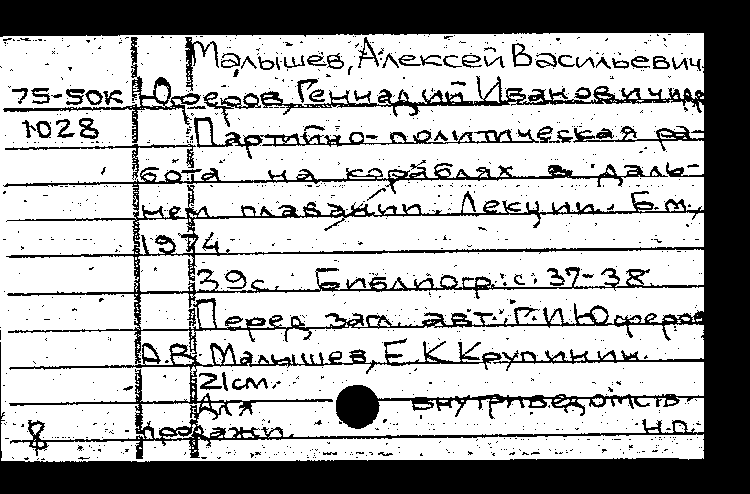 Малышев, Алексей Васильевич,
75-50к Юферов, Геннадий Иванович и др
1028 Партийно-политическая ра-
бота на кораблях в даль-
нем плавании. Лекции. Б.м.,
1974.
39с. Библиогр.: с. 37-38.
Перед загл. авт.: Г.И. Юферов
А.В. Малышев, Е.К Крупинин.
21см.
Для внутриведомств.
8 продажи. Н.п.